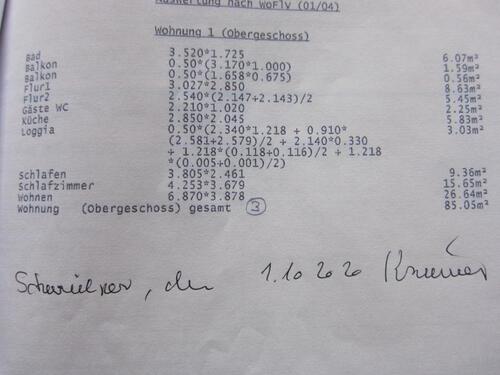 Auswertung nach WoFlV (01/04)
Wohnung 1 (Obergeschoss)
Bad 3.520*1.725 6.07m²
Balkon 0.50*(3.170*1.000) 1.59m²
Balkon 0.50*(1.658*0.675) 0.56m²
Flur1 3.027*2.850 8.63m²
Flur2 2.540*(2.147+2.143)/2 5.45m²
Gäste WC 2.210*1.020 2.25m²
Küche 2.850*2.045 5.83m²
Loggia 0.50*(2.340*1.218 + 0.910* 3.03m²
(2.581+2.579)/2 + 2.140*0.330
+ 1.218*(0.118+0.116)/2 + 1.218
*(0.005+0.001)/2)
Schlafen 3.805*2.461 9.36m²
Schlafzimmer 4.253*3.679 15.65m²
Wohnen 6.870*3.878 26.64m²
Wohnung (Obergeschoss) gesamt 3 85.05m²
, den 1.10 2020